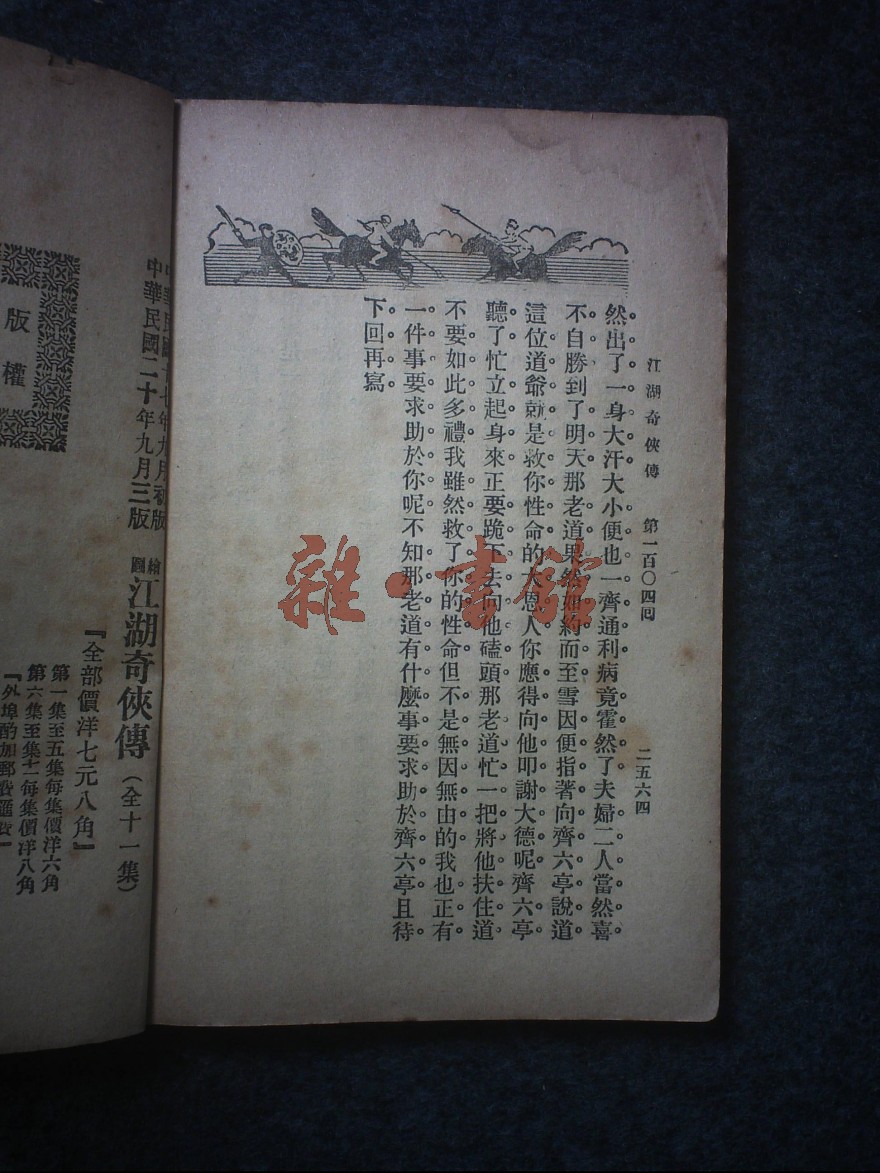 江湖奇俠傳　第一百〇四囘　二五六四
然出了一身大汗大小便也一齊通利病竟霍然了夫婦二人當然喜
不自勝到了明天那老道果然如約而至雪因便指著向齊六亭說道
這位道爺就是救你性命的大恩人你應得向他叩謝大德呢齊六亭
聽了忙立起身來正要跪下去向他磕頭那老道忙一把將他扶住道
不要如此多禮我雖然救了你的性命但不是無因無由的我也正有
一件事要求助於你呢不知那老道有什麼事要求助於齊六亭且待
下回再寫
雜·書館
中華民國二十年九月三版
繪圖江湖奇俠傳（全十一集）
『全部價洋七元八角』
第一集至五集每集價洋六角
第六集至集十一每集價洋八角
『外埠酌加郵費匯費』
版權